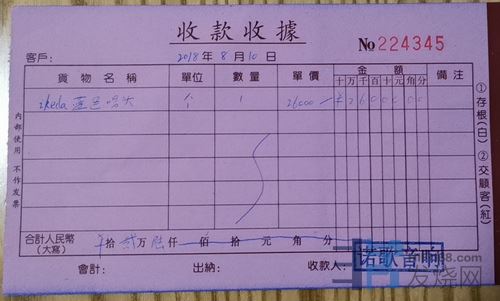 收款收據
No 224345
客戶：
2018年8月10日
貨物名稱 單位 數量 單價 金額 備注
十万千百十元角分
ikeda 蓝色唱头 个 1 26000 ¥26000 00
合計人民幣(大寫) 拾贰万陆仟 佰 拾 元 角 分
會計： 出納： 收款人：
諾歌音响
內部使用 不作发票
①存根(白) ②交顧客(紅)
发烧网